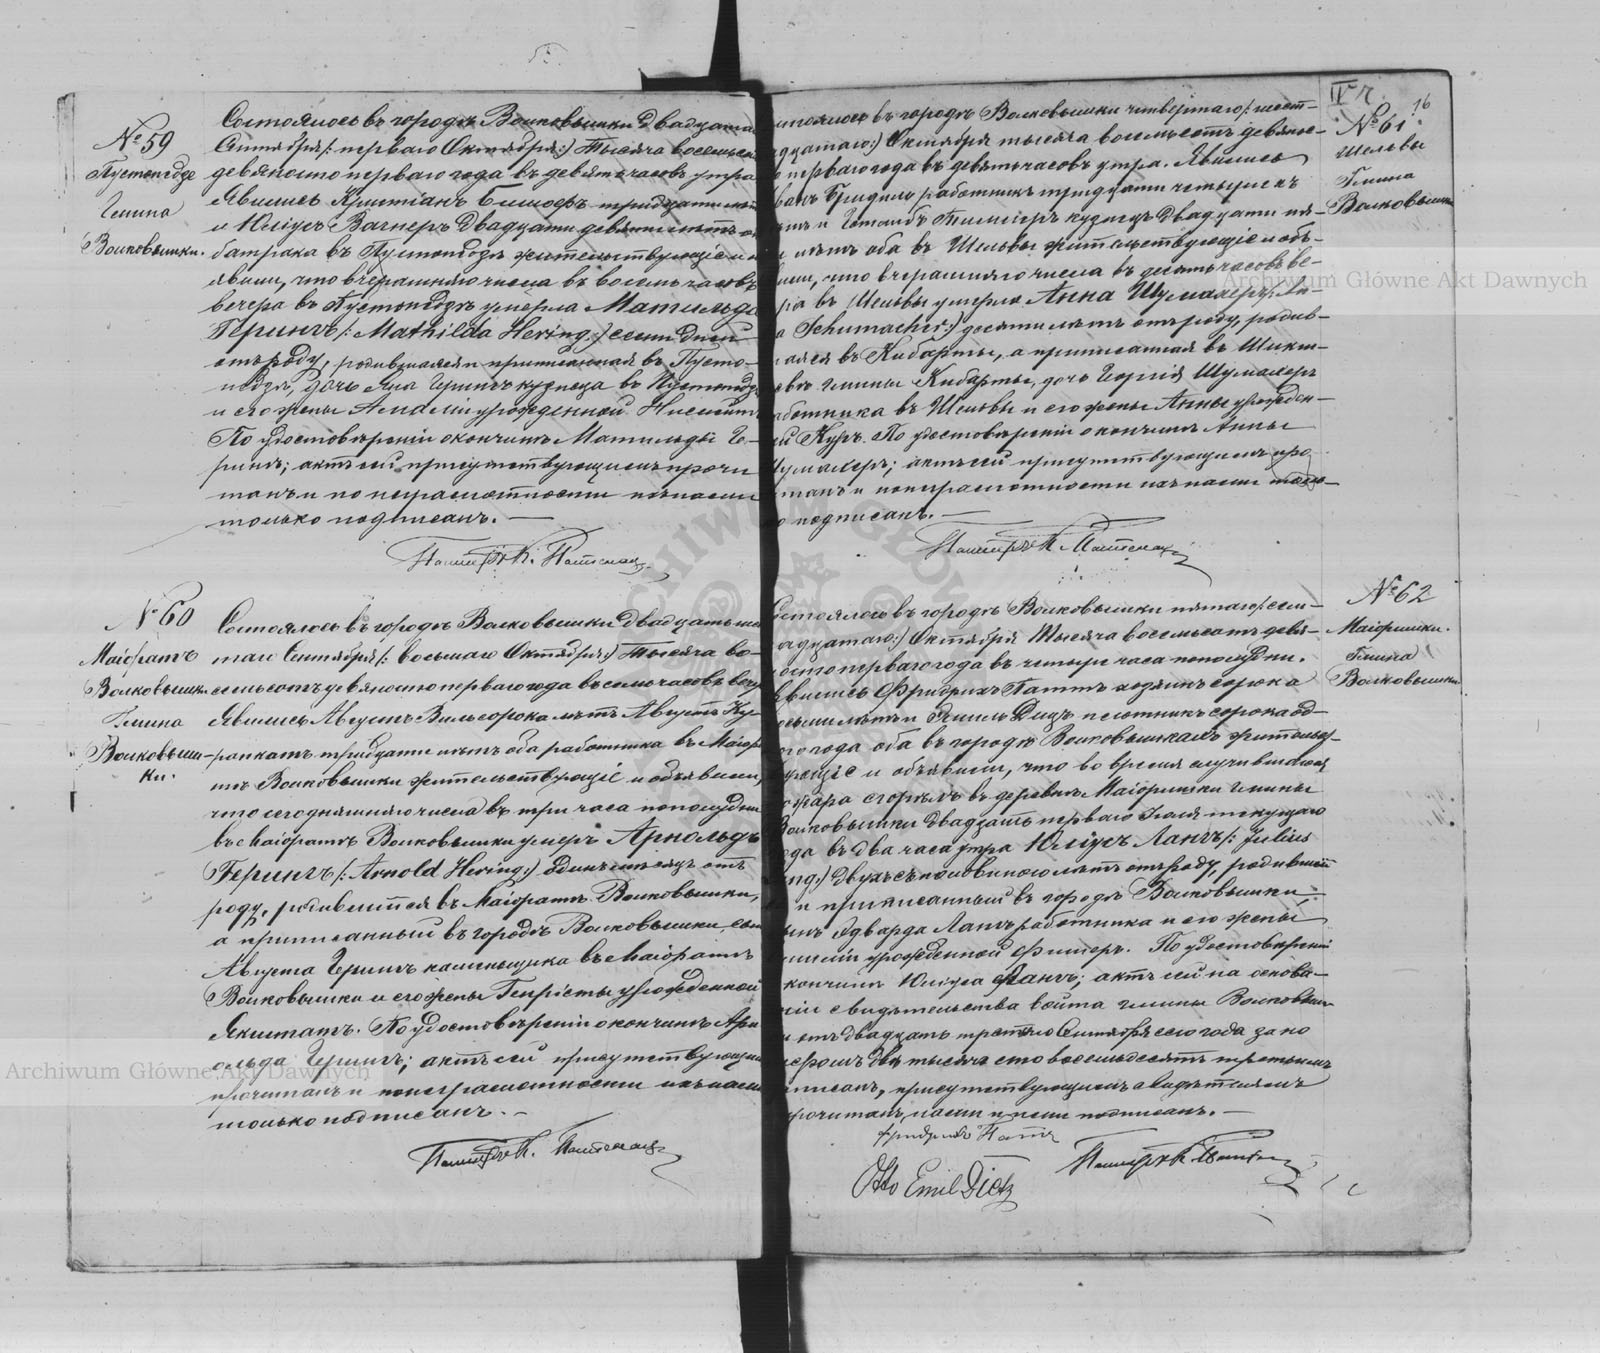 № 59
Пустопѣдзе
Гмина
Волковышки.
Состоялось въ городѣ Волковышки двадцата
Сентября /: перваго Октября :/ Тысяча восемьсотъ
девяносто перваго года въ девять часовъ утра
Явились Христіанъ Бишофъ тридцати
и Юліусъ Вагнеръ двадцати девяти лѣтъ
батрака въ жительствующіе и
явили, что вчерашняго числа въ восемь часовъ
вечера въ умерла Матильда
Герингъ /: Mathilda Hering :/ семи дней
отъ роду, родившаяся и приписанная въ Пусто-
дочь Яна Герингъ кузнеца въ
и его жены Амаліи урожденной
По удостовѣреніи о кончинѣ Матильды Ге-
рингъ; актъ сей присутствующимъ прочи
танъ и по неграмотности ихъ нами
только подписанъ. —
Пасторъ К.
№ 60
Маіоратъ
Волковышки
Гмина
Волковыш-
ки.
Состоялось въ городѣ Волковышки двадцать
таго Сентября /: восьмаго Октября :/ Тысяча во-
семьсотъ девяносто перваго года въ семь часовъ вечера
Явились Августъ сорока лѣтъ Августъ
тридцати лѣтъ оба работника въ Маіора
тѣ Волковышки жительствующіе и объявили,
что сегодняшняго числа въ три часа пополудни
въ Маіоратѣ Волковышки умеръ Арнольдъ
Герингъ /: Arnold Hering :/ одинъ мѣсяцъ отъ
роду, родившійся въ Маіоратѣ Волковышки,
а приписанный въ городѣ Волковышки, сынъ
Августа Герингъ каменьщика въ Маіоратѣ
Волковышки и его жены Генріеты урожденной
По удостовѣреніи о кончинѣ Арн
ольда Герингъ; актъ сей присутствующимъ
прочитанъ и по неграмотности ихъ нами
только подписанъ. —
Пасторъ К.
IV
16
№ 61
Шельвы
Гмина
Волковышки
стоялось въ городѣ Волковышки четвертаго /: шест-
надцатаго :/ Октября тысяча восемьсотъ девяно-
перваго года въ девять часовъ утра. Явились
работникъ тридцати четырехъ
и Готлибъ кузнецъ двадцати пя-
лѣтъ оба въ Шельвы жительствующіе и объ-
явили, что вчерашняго числа въ десять часовъ ве-
ра въ Шельвы умерла Анна Шумахеръ /: An-
a Schumacher :/ десяти лѣтъ отъ роду, родив-
аяся въ Кибарты, а приписанная въ
гмины Кибарты, дочь Георгія Шумахеръ
работника въ Шельвы и его жены Анны урожден-
ой Куръ. По удостовѣреніи о кончинѣ Анны
Шумахеръ; актъ сей присутствующимъ про-
читанъ и по неграмотности ихъ нами толь-
о подписанъ. —
Пасторъ К.
№ 62
Маіоришки.
Гмина
Волковышки
Состоялось въ городѣ Волковышки пятаго /: сем-
надцатаго :/ Октября Тысяча восемьсотъ девя-
осто перваго года въ четыре часа пополудни.
Явились Фридрихъ хозяинъ сорока
восьми лѣтъ и Эмиль Дицъ плотникъ сорока од-
ого года оба въ городѣ Волковышкахъ жительст-
ующіе и объявили, что во время случившагося
пожара сгорѣлъ въ деревнѣ Маіоришки гмины
Волковышки двадцать перваго Іюля текущаго
ода въ два часа утра Юліусъ Лангъ /: Julius
ang :/ двухъ съ половиною лѣтъ отъ роду, родившійся
и приписанный въ городѣ Волковышки
сынъ Эдварда Лангъ работника и его жены
урожденной Фишеръ. По удостовѣреніи
кончинѣ Юліуса Лангъ; актъ сей на основа-
ніи свидѣтельства войта гмины Волковыш
отъ двадцать третьяго Сентября сего года за но
меромъ двѣ тысячи сто восемьдесятъ третьимъ
писанъ, присутствующимъ свидѣтелямъ
прочитанъ, нами и ими подписанъ. —
Фридрихъ
Otto Emil Dietz
Пасторъ К.
Archiwum Główne Akt Dawnych
Archiwum Główne Akt Dawnych